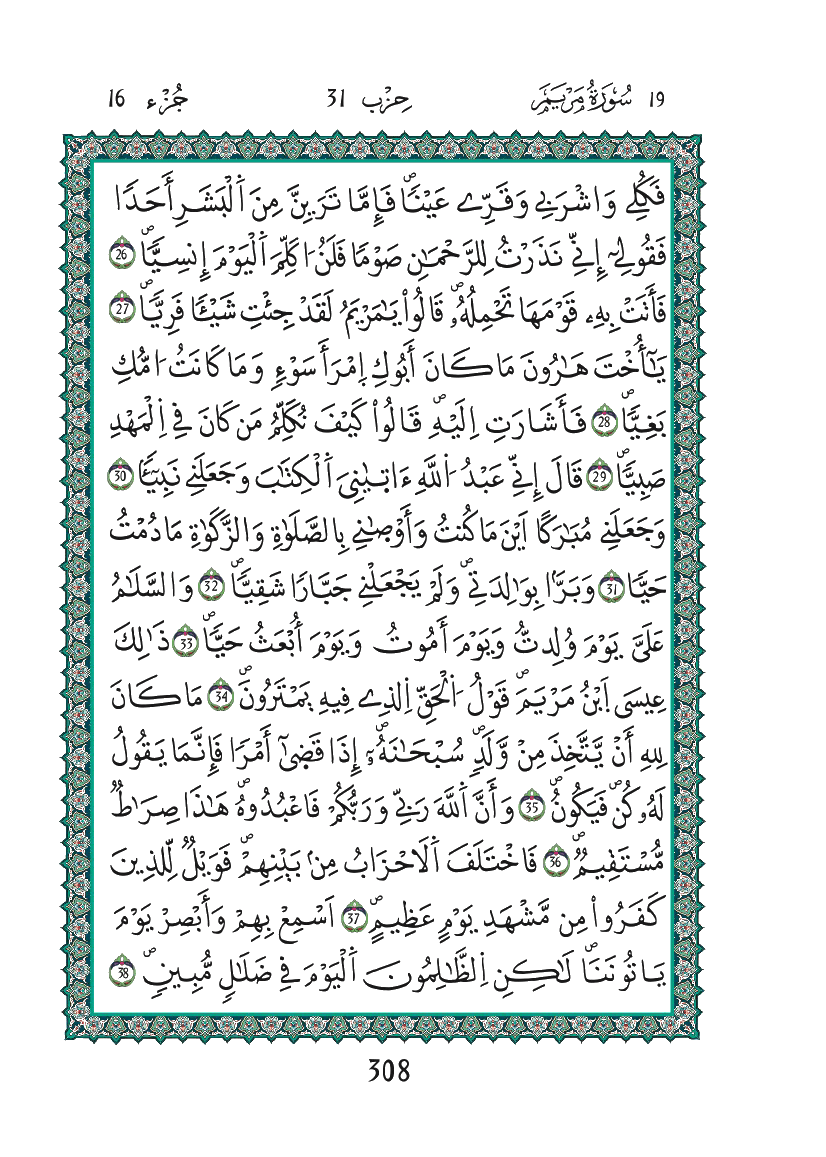 19 سُورَةُ مَرْيَمَ حِزْب 31 جُزْء 16
فَكُلِے وَاشْرَبِے وَقَرِّے عَيْناٗۖ فَإِمَّا تَرَيِنَّ مِنَ اَ۬لْبَشَرِ أَحَداٗ
فَقُولِےٓ إِنِّے نَذَرْتُ لِلرَّحْمَٰنِ صَوْماٗ فَلَنُ ا۟كَلِّمَ اَ۬لْيَوْمَ إِنسِيّاٗۖ 26
فَأَتَتْ بِهِۦ قَوْمَهَا تَحْمِلُهُۥۖ قَالُواْ يَٰمَرْيَمُ لَقَدْ جِئْتِ شَيْـٔاٗ فَرِيّاٗۖ 27
يَٰٓأُخْتَ هَٰرُونَ مَا كَانَ أَبُوكِ اِ۪مْرَأَ سَوْءٖ وَمَا كَانَتُ ا۟مُّكِ
بَغِيّاٗۖ 28 فَأَشَارَتِ اِلَيْهِۖ قَالُواْ كَيْفَ نُكَلِّمُ مَن كَانَ فِے اِ۬لْمَهْدِ
صَبِيّاٗۖ 29 قَالَ إِنِّے عَبْدُ اُ۬للَّهِ ءَات۪يٰنِيَ اَ۬لْكِتَٰبَ وَجَعَلَنِے نَبِيٓـٔاٗ 30
وَجَعَلَنِے مُبَٰرَكاً اَيْنَ مَا كُنتُ وَأَوْص۪يٰنِے بِالصَّلَوٰةِ وَالزَّكَوٰةِ مَا دُمْتُ
حَيّاٗ 31 وَبَرّاَۢ بِوَٰلِدَتِےۖ وَلَمْ يَجْعَلْنِے جَبَّاراٗ شَقِيّاٗۖ 32 وَالسَّلَٰمُ
عَلَيَّ يَوْمَ وُلِدتُّ وَيَوْمَ أَمُوتُ وَيَوْمَ أُبْعَثُ حَيّاٗۖ 33 ذَٰلِكَ
عِيسَي اَ۪بْنُ مَرْيَمَۖ قَوْلُ اُ۬لْحَقِّ اِ۬لذِے فِيهِ يَمْتَرُونَۖ 34 مَا كَانَ
لِلهِ أَنْ يَّتَّخِذَ مِنْ وَّلَدٖۖ سُبْحَٰنَهُۥٓۖ إِذَا قَض۪يٰٓ أَمْراٗ فَإِنَّمَا يَقُولُ
لَهُۥ كُنۖ فَيَكُونُۖ 35 وَأَنَّ اَ۬للَّهَ رَبِّے وَرَبُّكُمْ فَاعْبُدُوهُۖ هَٰذَا صِرَٰطٞ
مُّسْتَقِيمٞۖ 36 فَاخْتَلَفَ اَ۬لَاحْزَابُ مِنۢ بَيْنِهِمْۖ فَوَيْلٞ لِّلذِينَ
كَفَرُواْ مِن مَّشْهَدِ يَوْمٍ عَظِيمٍۖ 37 اَسْمِعْ بِهِمْ وَأَبْصِرْ يَوْمَ
يَاتُونَنَاۖ لَٰكِنِ اِ۬لظَّٰلِمُونَ اَ۬لْيَوْمَ فِے ضَلَٰلٖ مُّبِينٖۖ 38
308